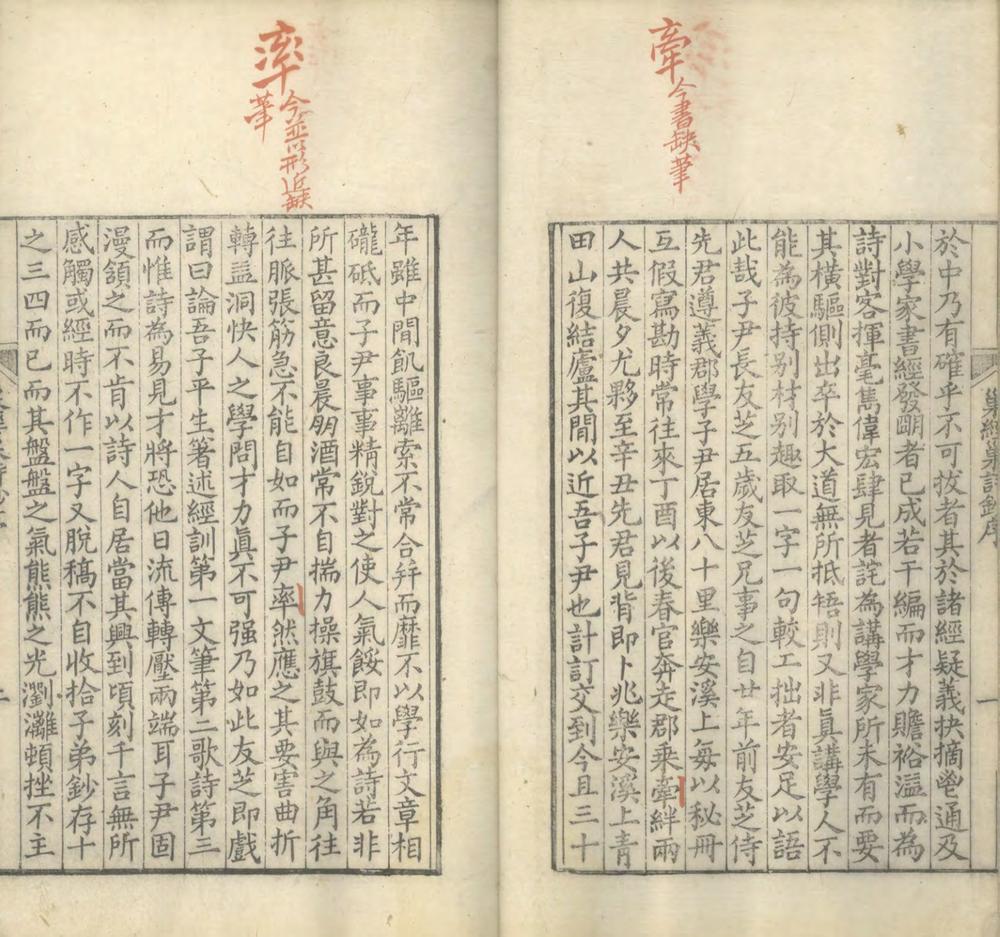 牽今書缺筆
巢經巢詩鈔序
一
於中乃有確乎不可拔者其於諸經疑義抉摘鬯通及
小學家書經發朙者已成若干編而才力贍裕溢而為
詩對客揮毫雋偉宏肆見者詫為講學家所未有而要
其橫驅側出卒於大道無所抵牾則又非眞講學人不
能為彼持别材别趣取一字一句較工拙者安足以語
此哉子尹長友芝五歲友芝兄事之自廿年前友芝侍
先君遵義郡學子尹居東八十里樂安溪上每以秘冊
互假寫勘時常往來丁酉以後春官奔走郡乘牽絆兩
人共晨夕尤夥至辛丑先君見背即卜兆樂安溪上青
田山復結廬其閒以近吾子尹也計訂交到今且三十
率今並以形近缺
筆
年雖中閒飢驅離索不常合幷而靡不以學行文章相
礲砥而子尹事事精銳對之使人氣餒即如為詩若非
所甚留意良晨朋酒常不自揣力操旗鼓而與之角往
往脈張筋急不能自如而子尹率然應之其要害曲折
轉益洞快人之學問才力眞不可强乃如此友芝即戲
謂曰論吾子平生箸述經訓第一文筆第二歌詩第三
而惟詩為易見才將恐他日流傳轉壓兩端耳子尹固
漫頷之而不肯以詩人自居當其興到頃刻千言無所
感觸或經時不作一字又脫稿不自收拾子弟鈔存十
之三四而已而其盤盤之氣熊熊之光瀏灕頓挫不主